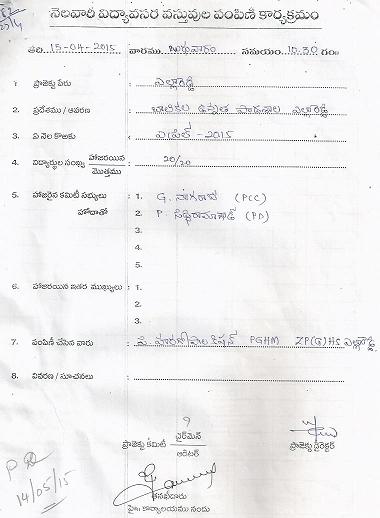 నెలవారీ విద్యావసర వస్తువుల పంపిణి కార్యక్రమం
తేది. 15-04-2015 వారము బుధవారం సమయం 10.30 గం॥
1 ప్రాజెక్టు పేరు : ఎల్లారెడ్డి
2. ప్రదేశము / ఆవరణ : బాలికల ఉన్నత పాఠశాల ఎల్లారెడ్డి
3. ఏ నెల కొఱకు : ఏప్రిల్ - 2015
4. విద్యార్థుల సంఖ్య హాజరయిన / మొత్తము : 20/20
5. హాజరైన కమిటీ సభ్యులు : 1. G. నాగరాజు (PCC)
హోదాతో 2. P. సిద్ధిరాములు (PD)
3.
4.
5.
6. హాజరయిన ఇతర ముఖ్యులు : 1.
2.
3.
7. పంపిణీ చేసిన వారు : వేణుగోపాల కిషన్ PGHM ZP(G)HS ఎల్లారెడ్డి
8. వివరణ / సూచనలు :
ప్రాజెక్టు కమిటీ చైర్‌మెన్ / ఆడిటర్
ప్రాజెక్టు డైరెక్టర్
తనిఖీదారు
హైః కార్యాలయము నందు
14/05/15